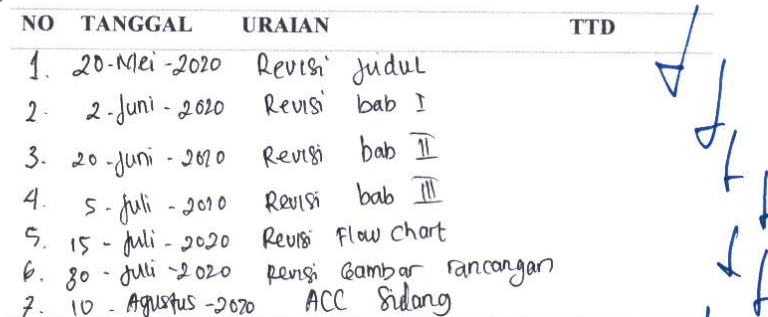 NO TANGGAL URAIAN TTD
1. 20-Mei-2020 Revisi Judul
2. 2-Juni-2020 Revisi bab I
3. 20-Juni-2020 Revisi bab II
4. 5-Juli-2020 Revisi bab III
5. 15-Juli-2020 Revisi Flow Chart
6. 30-Juli-2020 Revisi Gambar rancangan
7. 10-Agustus-2020 ACC Sidang